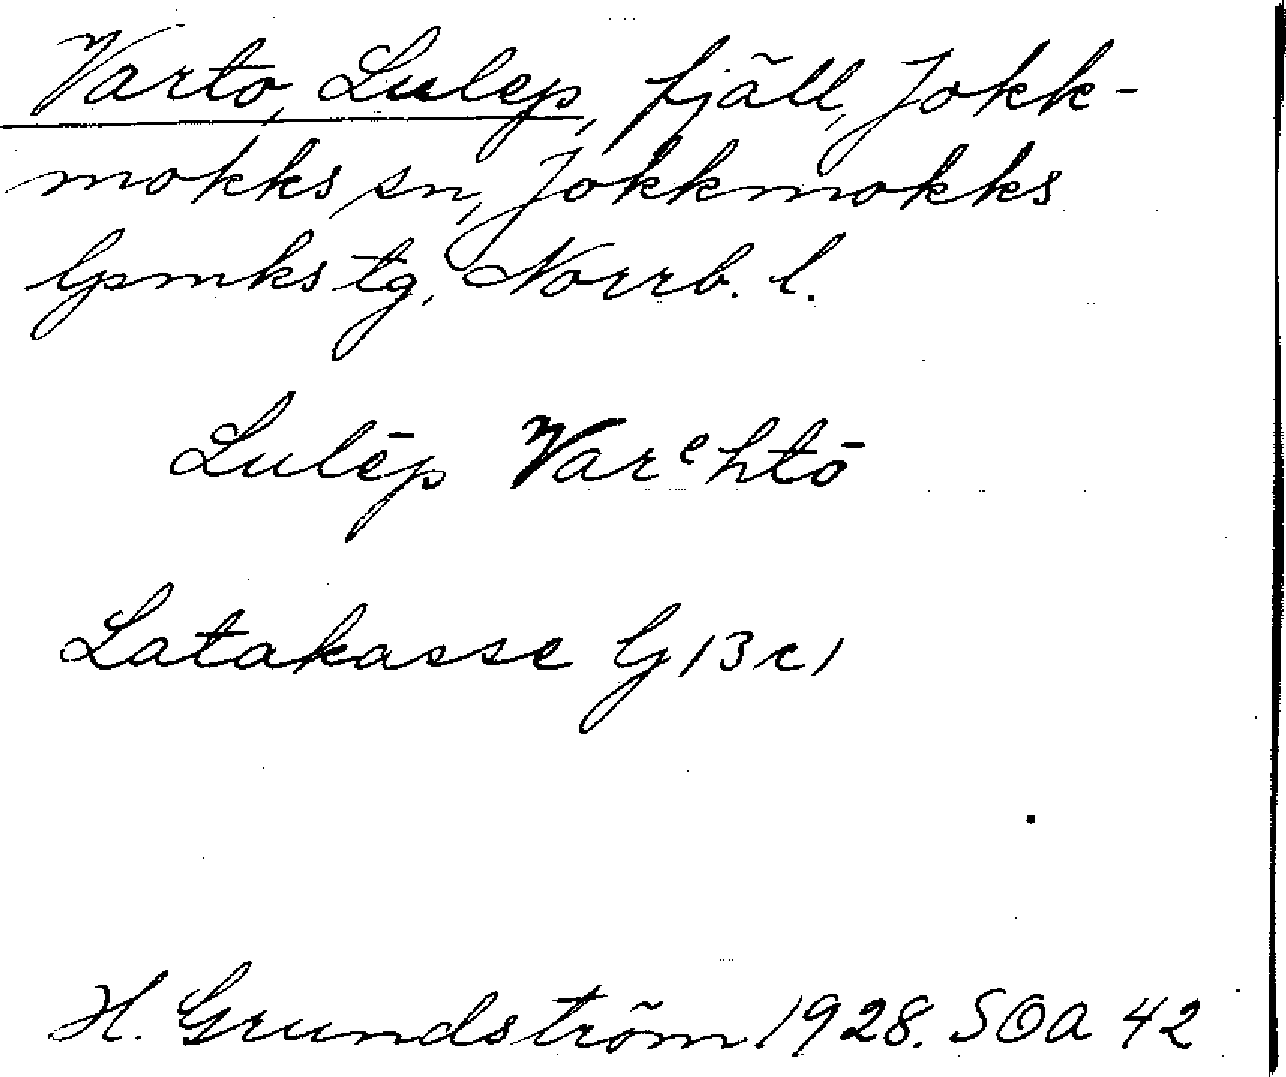 Varto, Lulep, fjäll, Jokk-
mokks sn, Jokkmokks
lpmks tg, Norrb. l.
Lulēp Varᵉhtō
Latakasse G 13 c 1
H. Grundström 1928. SOA 42